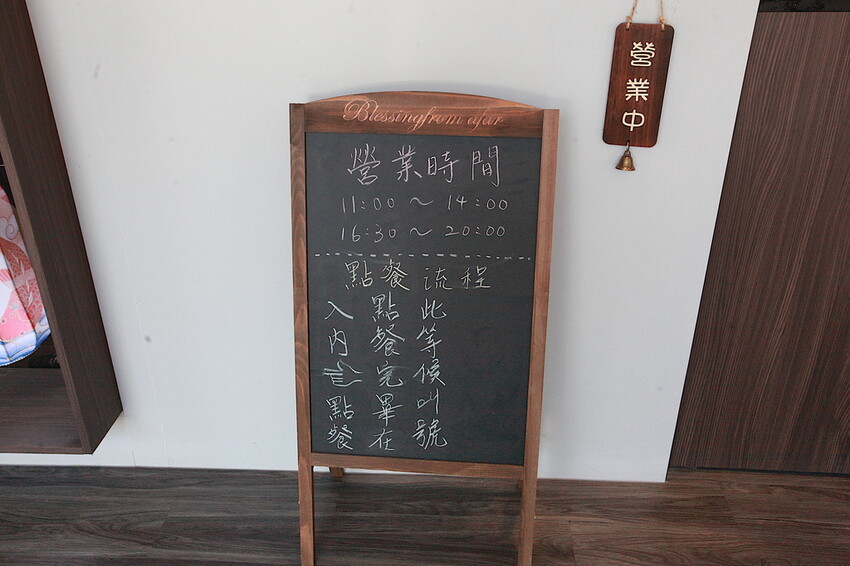 Blessingfrom afar
營業時間
11:00～14:00
16:30～20:00
點餐流程
入內點餐
點餐完畢在
此等候叫號
營業中